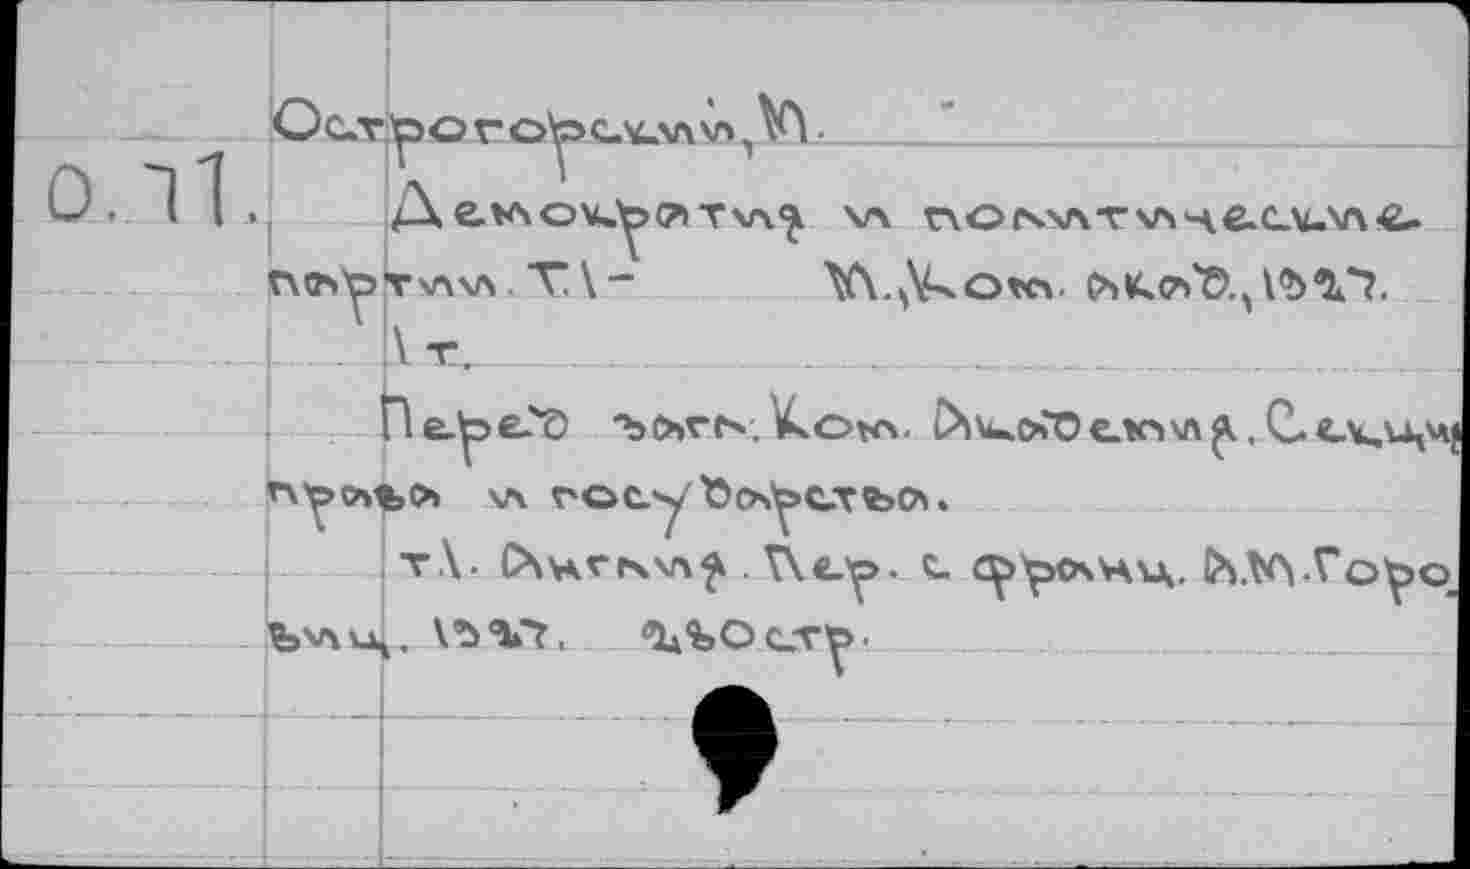 Острогорский, М.
О.71. Демократия и политические
партии. Т.1- М., Ком. акад., 1927.
1 т.
Перед загл: Ком. Академия. Секция
права и государства.
т.1. Англия. Пер. с франц. А.М.Горо_
виц. 1927. 2вОстр.